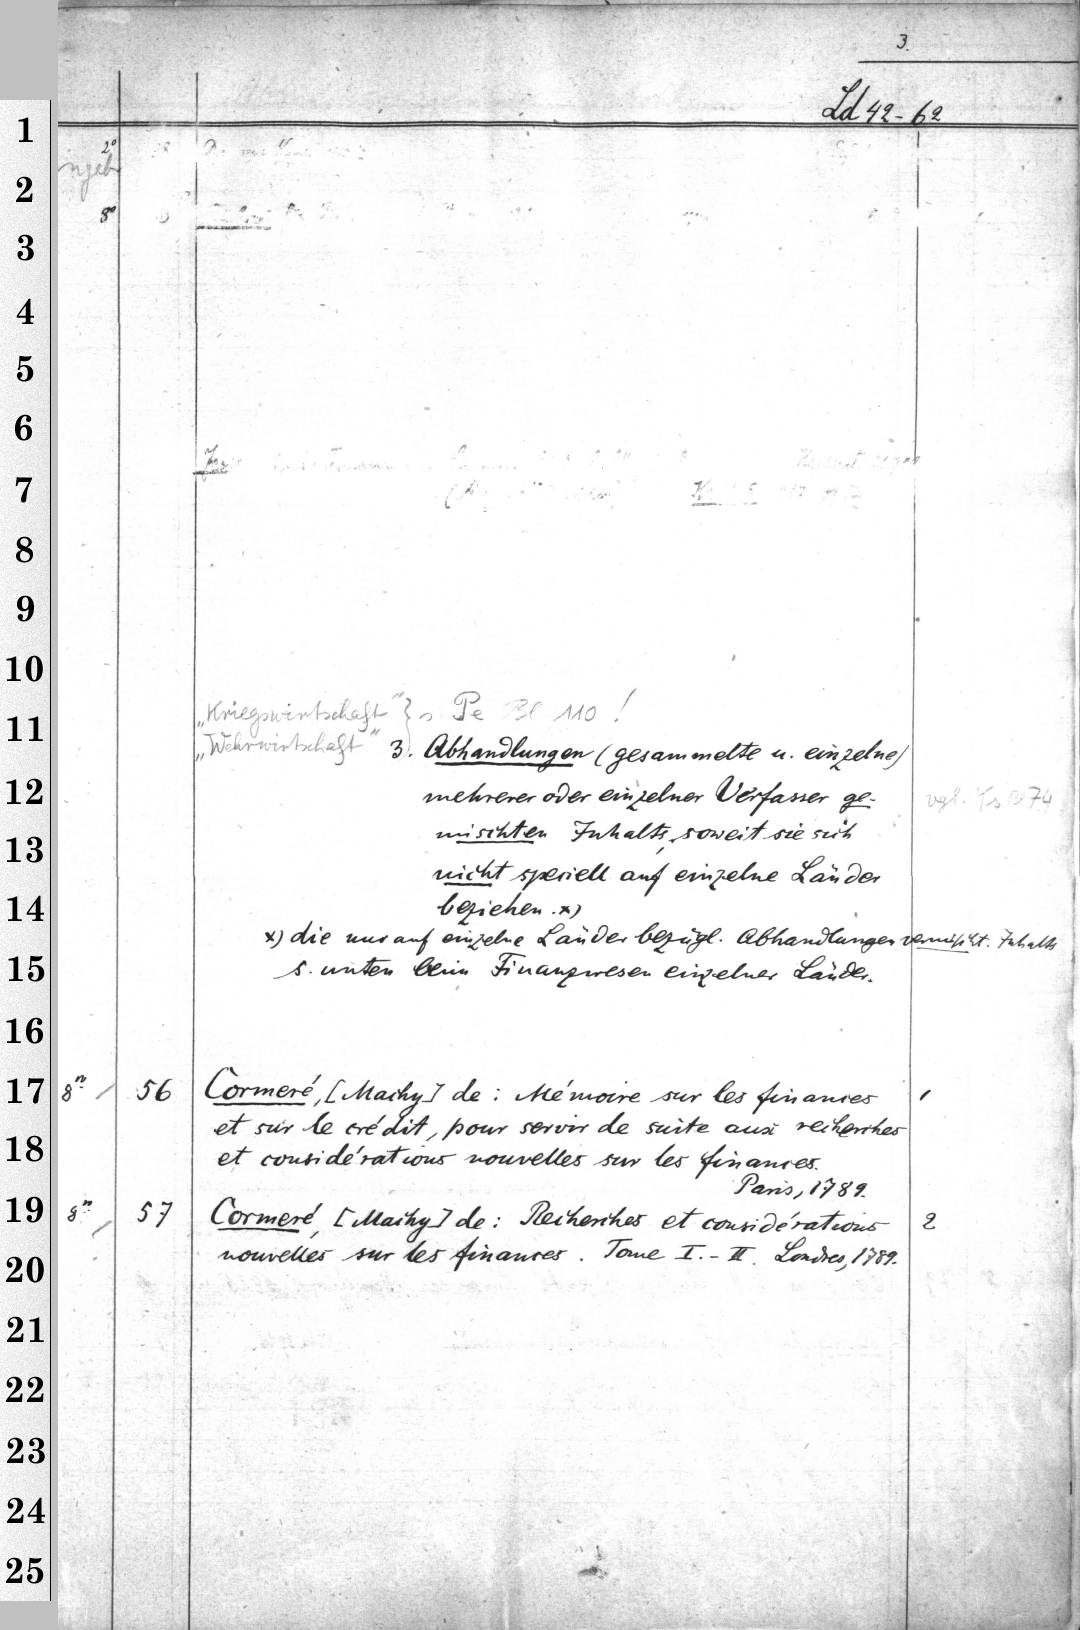 3.
Ld 42-62
1
2º
2
8º
3
4
5
6
7
8
9
10
„Kriegswirtschaft" } s. Pe Bl 110 !
11
„Wehrwirtschaft"
3. Abhandlungen (gesammelte u. einzelne)
12 mehrerer oder einzelner Verfasser ge- vgl. 74
13 mischten Inhalts, soweit sie sich
nicht speciell auf einzelne Länder
14 beziehen. x)
x) die nur auf einzelne Länder bezügl. Abhandlungen vermischt. Inhalts
15 s. unten beim Finanzwesen einzelner Länder.
16
17 8º 56 Cormeré, [Machy] de: Mémoire sur les finances 1
et sur le crédit, pour servir de suite aux recherches
18 et considérations nouvelles sur les finances.
Paris, 1789.
19 8º 57 Cormeré, [Machy] de: Recherches et considérations 2
nouvelles sur les finances. Tome I.-II. Londres, 1789.
20
21
22
23
24
25